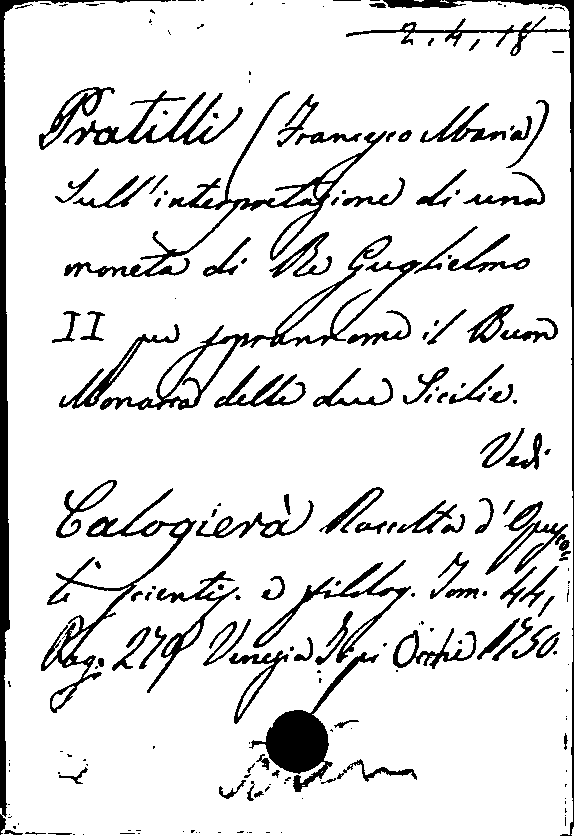 2.4.18
Pratilli (Francesco Maria)
Sull'interpretazione di una
moneta di Re Guglielmo
II per soprannome il Buon
Monarca delle due Sicilie.
Vedi
Calogierà Raccolta d'Opusco=
li scientif. e filolog. Tom. 44,
Pag. 279 Venezia Occhi 1750.